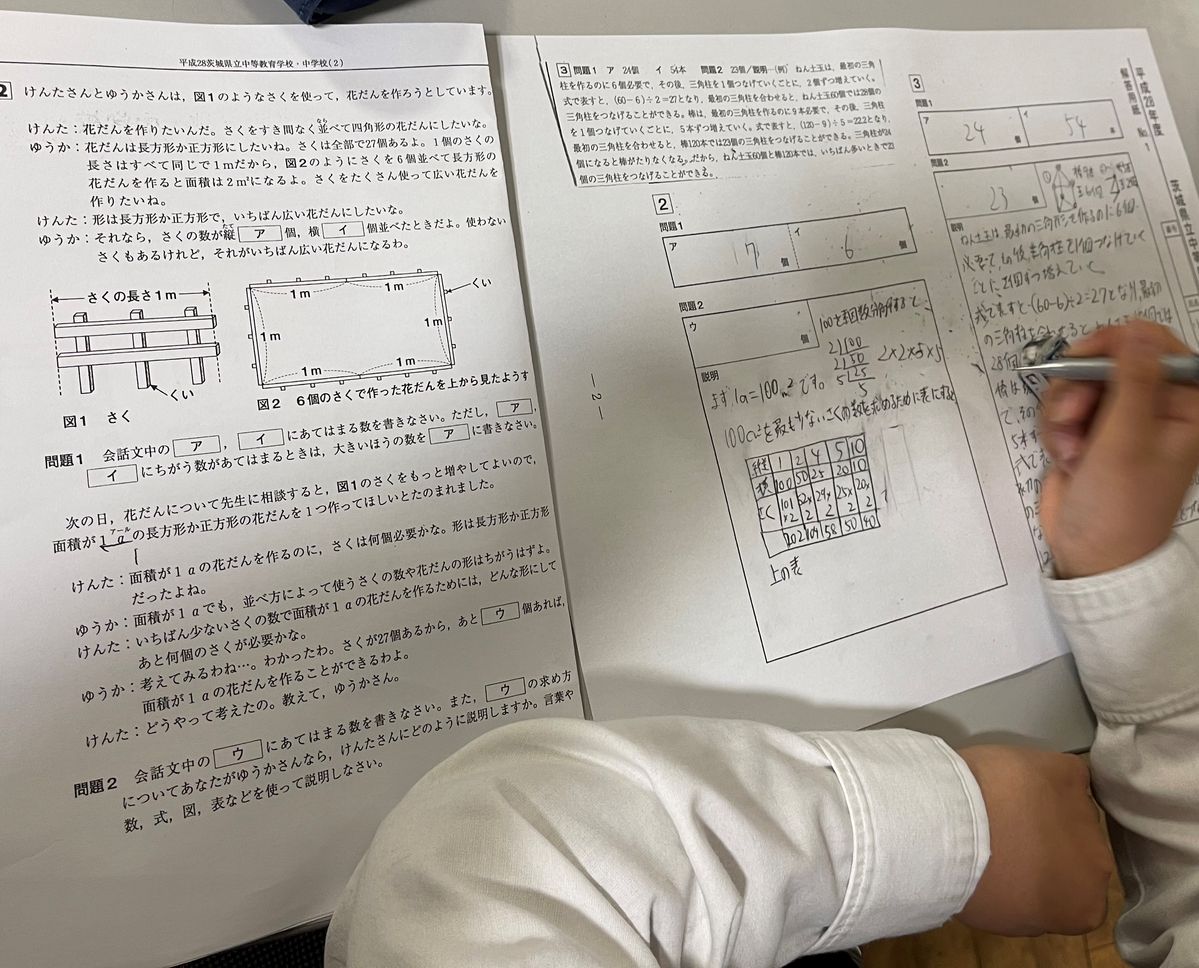 平成28茨城県立中等教育学校・中学校(2)
2 けんたさんとゆうかさんは，図1のようなさくを使って，花だんを作ろうとしています。
けんた：花だんを作りたいんだ。さくをすき間なく並べて四角形の花だんにしたいな。
ゆうか：花だんは長方形か正方形にしたいね。さくは全部で27個あるよ。1個のさくの
長さはすべて同じで1mだから，図2のようにさくを6個並べて長方形の
花だんを作ると面積は2m²になるよ。さくをたくさん使って広い花だんを
作りたいね。
けんた：形は長方形か正方形で，いちばん広い花だんにしたいな。
ゆうか：それなら，さくの数が縦 ア 個，横 イ 個並べたときだよ。使わない
さくもあるけれど，それがいちばん広い花だんになるわ。
さくの長さ1m
くい
図1 さく
1m
1m
くい
1m
1m
1m
1m
図2 6個のさくで作った花だんを上から見たようす
問題1 会話文中の ア ， イ にあてはまる数を書きなさい。ただし， ア ，
イ にちがう数があてはまるときは，大きいほうの数を ア に書きなさい。
次の日，花だんについて先生に相談すると，図1のさくをもっと増やしてよいので，
面積が1aの長方形か正方形の花だんを1つ作ってほしいとたのまれました。
アール
けんた：面積が1aの花だんを作るのに，さくは何個必要かな。形は長方形か正方形
だったよね。
ゆうか：面積が1aでも，並べ方によって使うさくの数や花だんの形はちがうはずよ。
けんた：いちばん少ないさくの数で面積が1aの花だんを作るためには，どんな形にして
あと何個のさくが必要かな。
ゆうか：考えてみるわね…。わかったわ。さくが27個あるから，あと ウ 個あれば，
面積が1aの花だんを作ることができるわよ。
けんた：どうやって考えたの。教えて，ゆうかさん。
問題2 会話文中の ウ にあてはまる数を書きなさい。また， ウ の求め方
についてあなたがゆうかさんなら，けんたさんにどのように説明しますか。言葉や
数，式，図，表などを使って説明しなさい。
－2－
3 問題1 ア 24個 イ 54本 問題2 23個／説明…(例) ねん土玉は，最初の三角
柱を作るのに6個必要で，その後，三角柱を1個つなげていくごとに，2個ずつ増えていく。
式で表すと，(60－6)÷2＝27となり，最初の三角柱を合わせると，ねん土玉60個では28個の
三角柱をつなげることができる。棒は，最初の三角柱を作るのに9本必要で，その後，三角柱
を1個つなげていくごとに，5本ずつ増えていく。式で表すと，(120－9)÷5＝22.2となり，
最初の三角柱を合わせると，棒120本では23個の三角柱をつなげることができる。三角柱が24
個になると棒がたりなくなる。だから，ねん土玉60個と棒120本では，いちばん多いときで23
個の三角柱をつなげることができる。
2
問題1
ア 7 個
イ 6 個
問題2
ウ 個
説明
100を素因数分解すると
2)100
2)50
5)25
5
2×2×5×5
まず，1a=100m²です。
100m²を最も少ないさくの数を求めるために表にすると
縦 1 2 4 5 10
横 100 50 25 20 10
101×2 52×2 29×2 25×2 20×2
202 104 58 50 40
上の表
平成28年度
茨城県立中等
解答用紙 No. 1
3
問題1
ア 24 個
イ 54 本
問題2
23 個
説明
ねん土玉は，最初の三角形を作るのに6個
必要で，その後，三角柱を1個つなげていく
ごとに2個ずつ増えていく
式で表すと(60-6)÷2=27となり，最初
の三角柱を合わせると
28個
棒は
5本ず